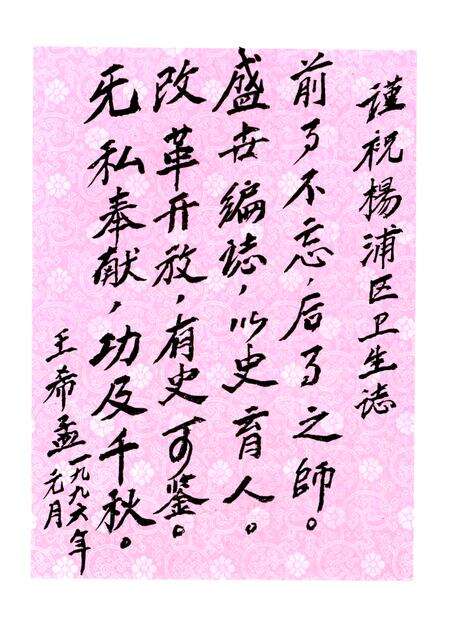 謹祝楊浦区卫生誌
前事不忘，后事之師。
盛世编誌，以史育人。
改革开放，有史可鉴。
无私奉献，功及千秋。
王希孟一九九六年
元月